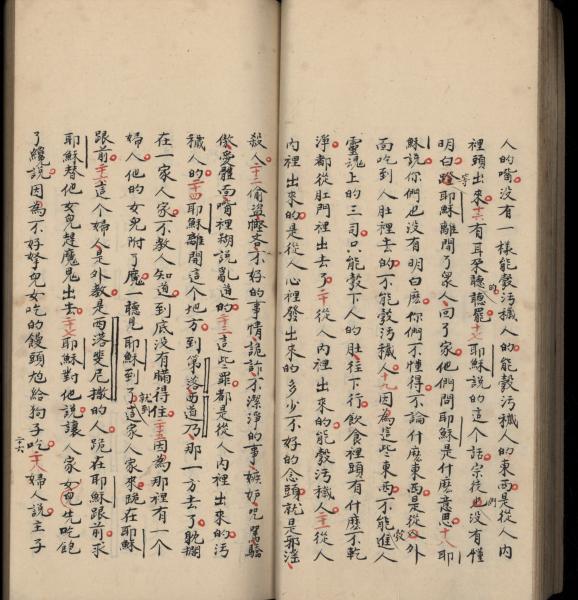 人的嘴沒有一樣能彀汚穢人的能彀汚穢人的東西是從人內
裡頭出來十六有耳朶聽聽罷十七耶穌說的這個話宗徒們也沒有懂
明白等耶穌離開了衆人回了家他們問耶穌是什麽意思十八耶
穌說你們也沒有明白麽你們不懂得不論什麽東西是從外
面吃到人肚裡去的不能彀汚穢人十九因為這些東西不能彀進人
靈魂上的三司只能彀下人的肚往下行飲食裡頭有什麽不乾
淨都從肛門裡出去了二十從人內裡出來的能彀汚穢人二十一從人
內裡出來的是從人心裡發出來的多少不好的念頭就是邪淫
殺人二十二偷盜慳吝不好的事情詭詐不潔淨的事嫉妒咒罵驕
傲受體面嘴裡糊說亂道的二十三這些罪都是從人內裡出來的汚
穢人的二十四耶穌離開這個地方到弟落西道乃那一方去了耽擱
在一家人家不教人知道到底沒有瞞得住二十五因為那裡有一个
婦人他的女兒附了魔一聽見耶穌到了這家人家就到來跪在耶穌
跟前二十六這个婦人是外教是西落斐尼撒的人跪在耶穌跟前求
耶穌替他女兒趕魔鬼出去二十七耶穌對他說讓人家女兒先吃飽
了纔說因為不好拏兒女吃的饅頭尥給狗子吃二十八婦人說主子
二十六